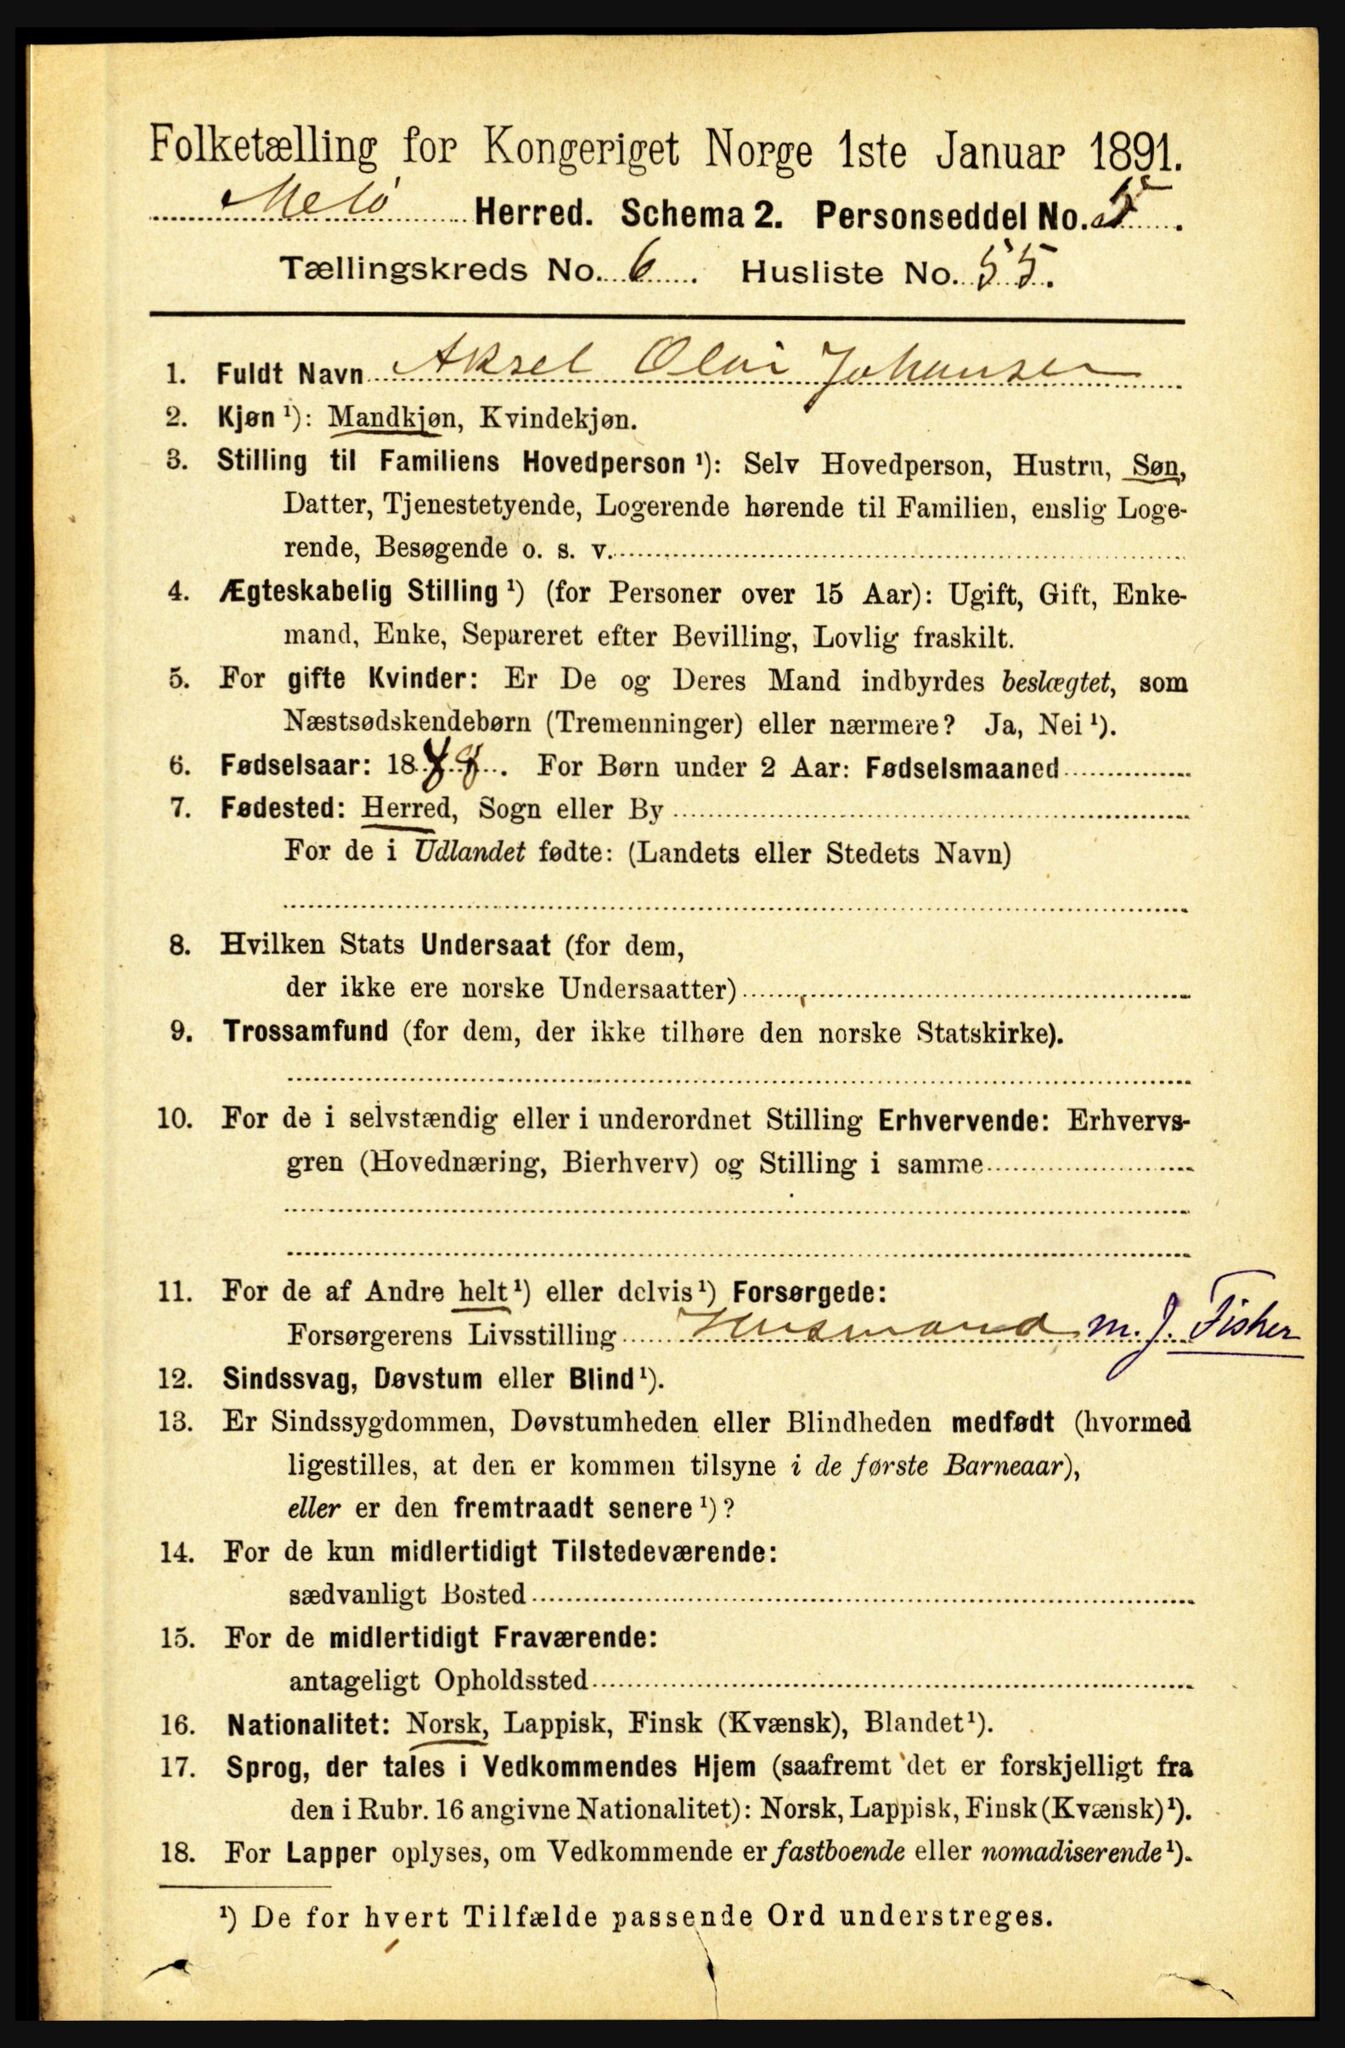 Folketælling for Kongeriget Norge 1ste Januar 1891.
Melø Herred. Schema 2. Personseddel No. 5.
Tællingskreds No. 6. Husliste No. 55.
1. Fuldt Navn Aksel Olai Johansen
2. Kjøn ¹): Mandkjøn, Kvindekjøn.
3. Stilling til Familiens Hovedperson ¹): Selv Hovedperson, Hustru, Søn,
Datter, Tjenestetyende, Logerende hørende til Familien, enslig Loge-
rende, Besøgende o. s. v.
4. Ægteskabelig Stilling ¹) (for Personer over 15 Aar): Ugift, Gift, Enke-
mand, Enke, Separeret efter Bevilling, Lovlig fraskilt.
5. For gifte Kvinder: Er De og Deres Mand indbyrdes beslægtet, som
Næstsødskendebørn (Tremenninger) eller nærmere? Ja, Nei ¹).
6. Fødselsaar: 18 . For Børn under 2 Aar: Fødselsmaaned
7. Fødested: Herred, Sogn eller By
For de i Udlandet fødte: (Landets eller Stedets Navn)
8. Hvilken Stats Undersaat (for dem,
der ikke ere norske Undersaatter)
9. Trossamfund (for dem, der ikke tilhøre den norske Statskirke).
10. For de i selvstændig eller i underordnet Stilling Erhvervende: Erhvervs-
gren (Hovednæring, Bierhverv) og Stilling i samme
11. For de af Andre helt ¹) eller delvis ¹) Forsørgede:
Forsørgerens Livsstilling Husmand m. J. Fisher
12. Sindssvag, Døvstum eller Blind ¹).
13. Er Sindssygdommen, Døvstumheden eller Blindheden medfødt (hvormed
ligestilles, at den er kommen tilsyne i de første Barneaar),
eller er den fremtraadt senere ¹)?
14. For de kun midlertidigt Tilstedeværende:
sædvanligt Bosted
15. For de midlertidigt Fraværende:
antageligt Opholdssted
16. Nationalitet: Norsk, Lappisk, Finsk (Kvænsk), Blandet ¹).
17. Sprog, der tales i Vedkommendes Hjem (saafremt det er forskjelligt fra
den i Rubr. 16 angivne Nationalitet): Norsk, Lappisk, Finsk (Kvænsk) ¹).
18. For Lapper oplyses, om Vedkommende er fastboende eller nomadiserende ¹).
¹) De for hvert Tilfælde passende Ord understreges.